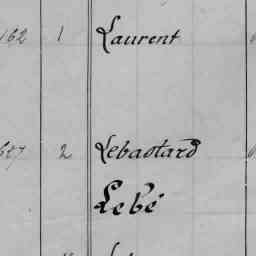 162 1 Laurent
2 Lebastard
Lebé